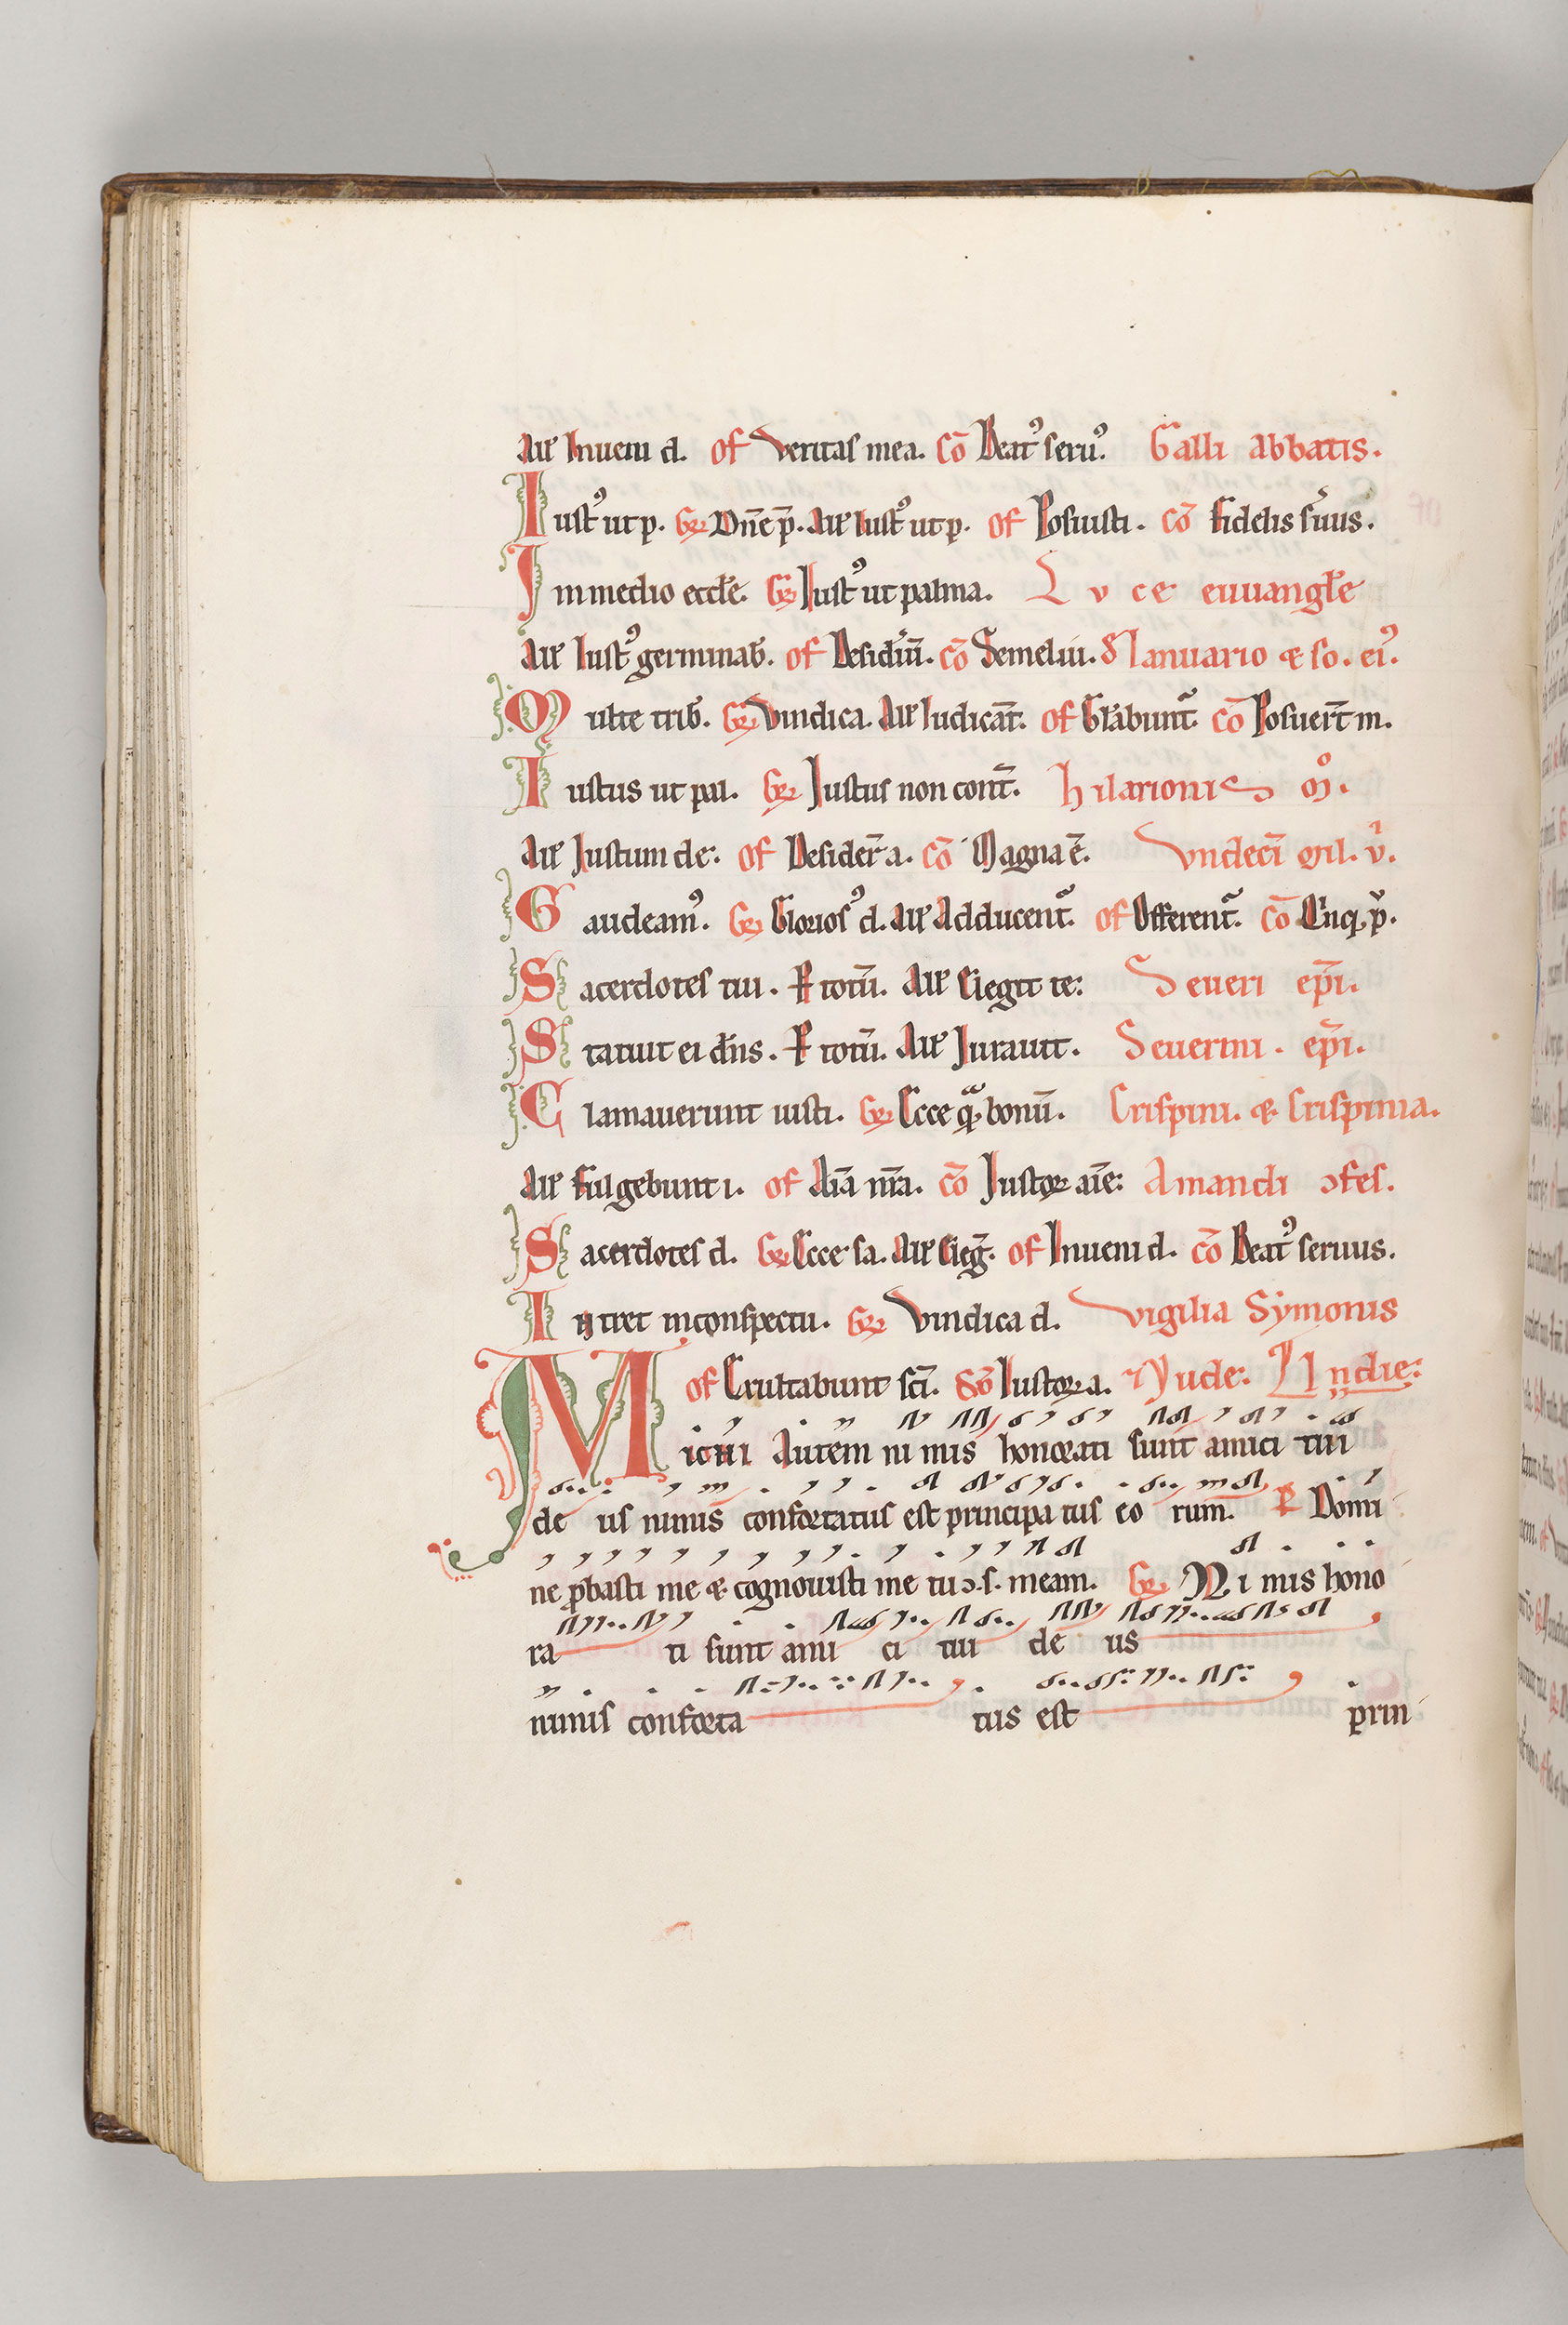 Alł Inueni d. of Veritas mea. Co᷑ Beatꝰ seruꝰ. Galli abbatis.
Iustꝰ ut p. Gr Dn̄e p̄. Alł Iustꝰ ut p. of Posuisti. Cō Fidelis ſuus.
In medio eccłe. Gr Iustꝰ ut palma. Luce euuangłe
Alł Iustꝰ germinab̄. of Desid'iū. Cō Semel iu. S Ianuario & so. eiꝰ.
Multe trib̄. Gr Vindica. Alł Iudicāt. of Głabunt᷑. Cō Posuer̄t m.
Iustus ut pal. Gr Iustus non cont̄. hilarionis mͦ.
Alł Iustum de: of Desider̄ a. Cō Magna ē. Vndecī mil. v̄.
Gaudeamꝰ. Gr Gloriosꝰ d. Alł Adducent᷑. of Offerent᷑. Cō Q'nq; p̄.
Sacerdotes tui. P totū. Alł Elegit te: Seueri ep̄i.
Statuit ei dn̄s. P totū. Alł Iurauit. Seuerini. ep̄i.
Clamauerunt iusti. Gr Ecce qͣ bonū. Crispini. & Crispinia.
Alł Fulgebunt i. of Aīa nr̄a. Cō Iustoꝝ aīe: Amandi ↄfes.
Sacerdotes d. Gr Ecce sa. Alł Elegꝰ. of Inueni d. Cō Beatꝰ seruus.
Intret in conspectu. Gr Vindica d. Vigilia Sẏmonis
of Exultabunt scī. Cō Iustoꝝ a. ⁊ Yude: In die:
Michi autem nimis honorati sunt amici tui
de us nimis confortatus est principa tus eo rum. P Domi
ne ꝓbasti me & cognouisti me tu ↄ. s. meam. Gr Ni mis hono
ra ti sunt ami ci tui de us
nimis conforta tus est prin